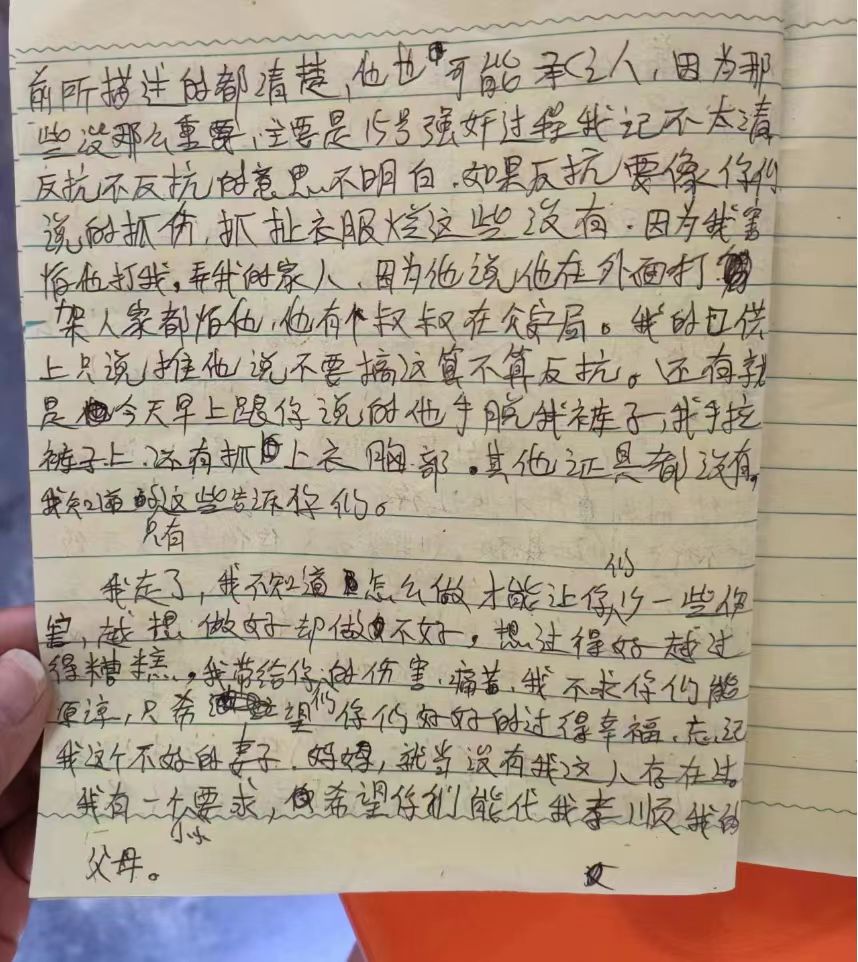 前所描述的都清楚，他也可能承认人，因为那
些没那么重要，主要是15号强奸过程我记不太清
反抗不反抗的意思不明白．如果反抗要像你们
说的抓伤，抓扯衣服烂这些没有．因为我害
怕他打我，弄我的家人，因为他说他在外面打
架人家都怕他，他有个叔叔在公安局。我的口供
上只说推他说不要搞这算不算反抗。还有就
是今天早上跟你说的他手脱我裤子，我手拉
裤子上．还有抓上衣胸部．其他证具都没有，
我知道的这些告诉你们。
只有
我走了，我不知道怎么做才能让你们少一些伤
害，越想做好却做不好，想过得好越过
得糟糕，我带给你的伤害．痛苦，我不求你们能
原谅，只希望你们好好的过得幸福，忘记
我这个不好的妻子．妈妈，就当没有我这人存在过。
我有一个小小要求，希望你们能代我孝顺我的
父母。